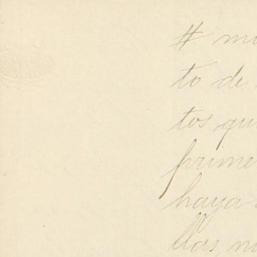 # mu
to de
tos qu
prime
haya
llas n